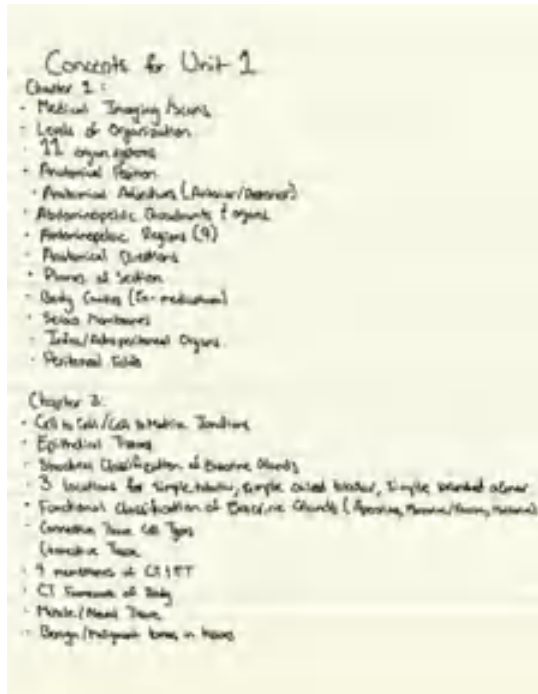 Concepts for Unit 1
Chapter 1:
· Medical Imaging/Scans
· Levels of Organization
· 11 organ systems
· Anatomical Position
· Anatomical Adjectives (Anterior/Posterior)
· Abdominopelvic Quadrants & organs
· Abdominopelvic Regions (9)
· Anatomical Directions
· Planes of Section
· Body Cavities (Ex- mediastinum)
· Serous Membranes
· Intra/Retroperitoneal Organs
· Peritoneal Folds
Chapter 3:
· Cell to Cell/Cell to Matrix Junctions
· Epithelial Tissues
· Structural Classification of Exocrine Glands
· 3 locations for simple tubular, simple coiled tubular, simple branched acinar
· Functional Classification of Exocrine Glands (Apocrine, Merocrine/Eccrine, Holocrine)
· Connective Tissue Cell Types
Connective Tissue
· membranes of
· CT Framework of Body
· Muscle/Neural Tissue
· Benign/Malignant in tissues